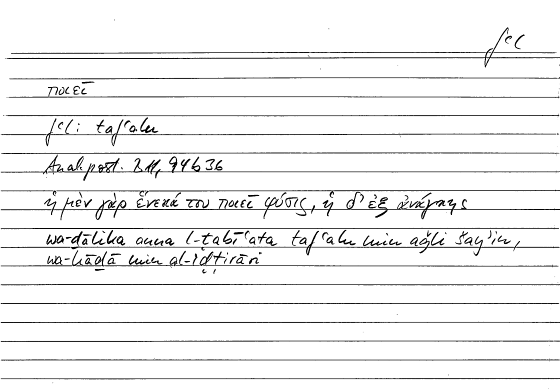 fʿl
ποιεῖ
fʿl: tafʿalu
Anal. post. B 11, 94b36
ἡ μὲν γὰρ ἕνεκά του ποιεῖ φύσις, ἡ δ' ἐξ ἀνάγκης
wa-ḏālika anna l-ṭabīʿata tafʿalu min aǧli šayʾin,
wa-hāḏā min al-iḍṭirāri